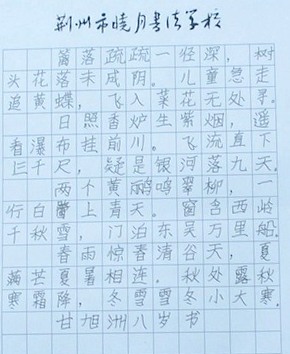 荆州市晓月书法学校
篱落疏疏一径深，树
头花落未成阴。儿童急走
追黄蝶，飞入菜花无处寻。
日照香炉生紫烟，遥
看瀑布挂前川。飞流直下
三千尺，疑是银河落九天。
两个黄鹂鸣翠柳，一
行白鹭上青天。窗含西岭
千秋雪，门泊东吴万里船。
春雨惊春清谷天，夏
满芒夏暑相连。秋处露秋
寒霜降，冬雪雪冬小大寒。
甘旭洲八岁书